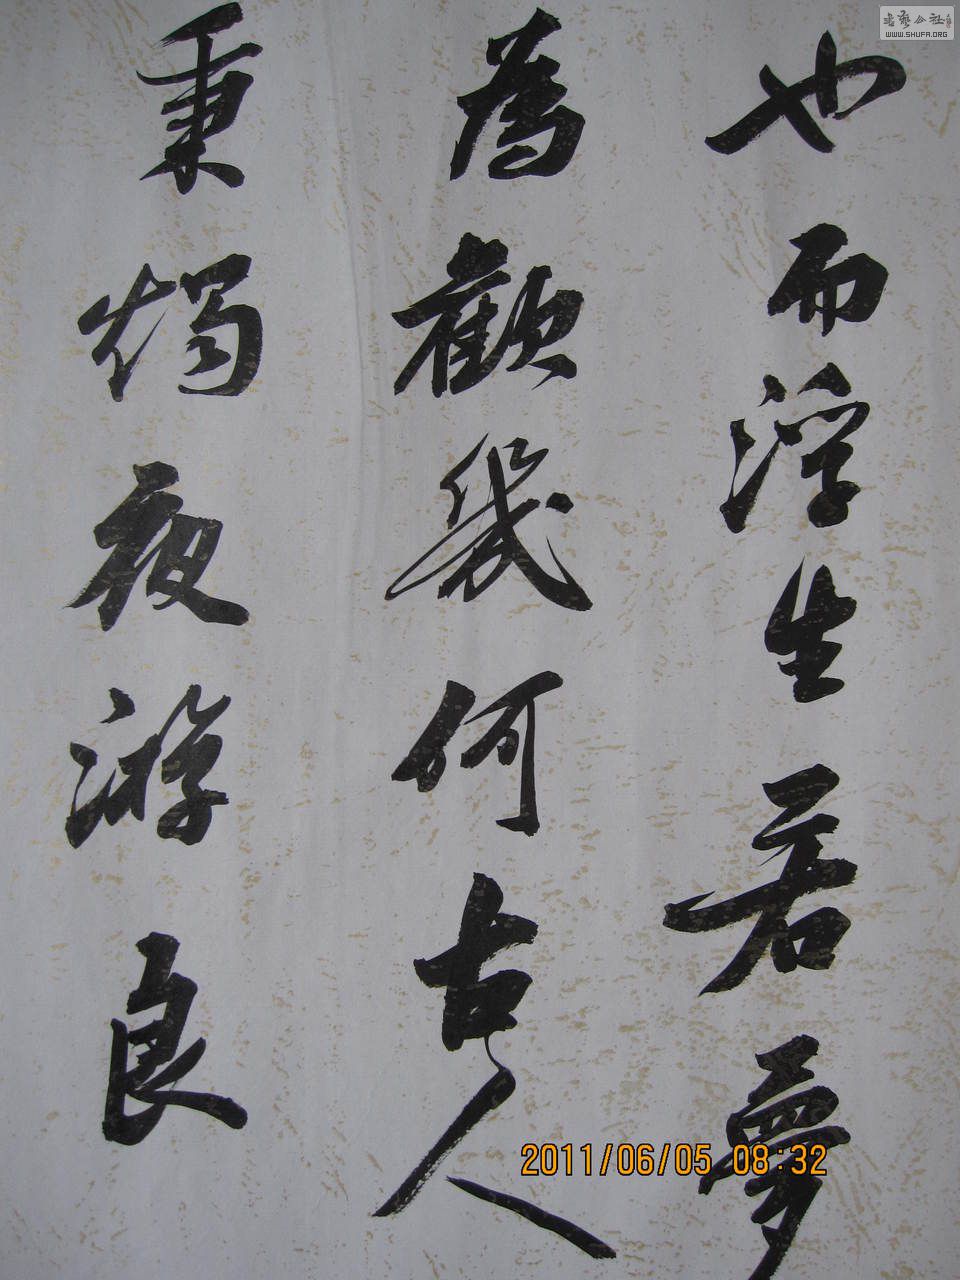 也而浮生若夢
為歡幾何古人
秉燭夜游良
书艺公社
WWW.SHUFA.ORG
2011/06/05 08:32